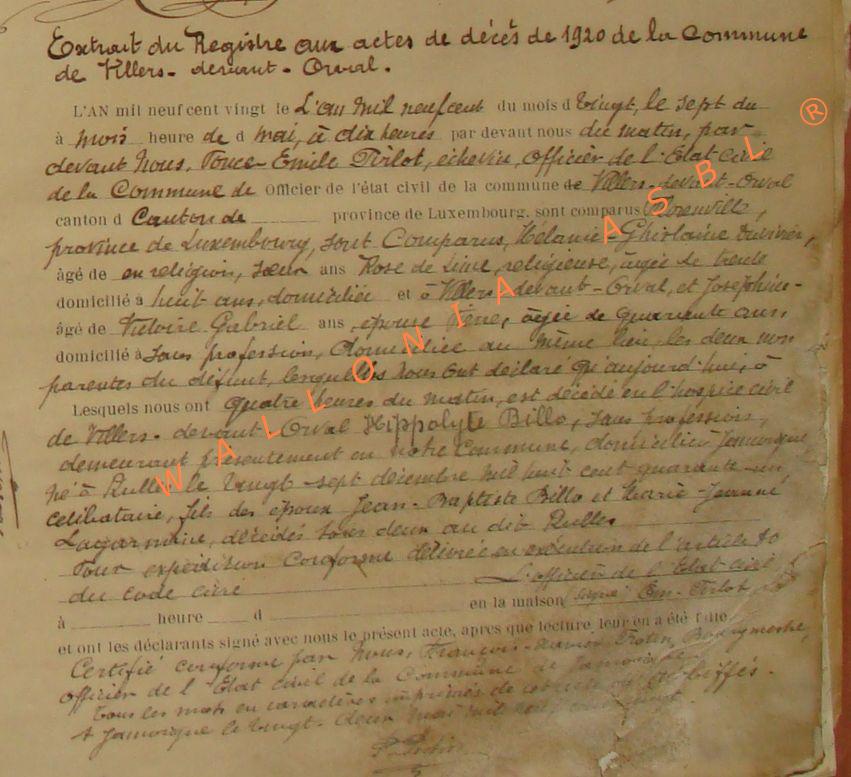 Extrait du Registre aux actes de décès de 1920 de la Commune
de Villers-devant-Orval.
L'AN mil neuf cent vingt le L'an mil neuf cent du mois d vingt, le sept du
à mois heure de d mai, à dix heures par devant nous du matin, par
devant Nous, Ponce-Emile Tirlot, échevin, Officier de l'Etat civil
de la Commune de officier de l'état civil de la commune de Villers-devant-Orval
canton d Canton de province de Luxembourg, sont comparus Florenville,
province de Luxembourg, sont Comparus, Mélanie Ghislaine
âgé de en religion, Sœur ans Rose de Lima, religieuse, âgée de trente
domicilié à huit ans, domiciliée et à Villers-devant-Orval, et Joséphine-
âgé de Victoire Gabriel ans, épouse âgée de quarante ans,
domicilié à sans profession, domiciliée au même lieu, les deux non
parentes du défunt, lesquelles nous ont déclaré qu'aujourd'hui, à
Lesquels nous ont quatre heures du matin, est décédé en l'hospice civil
de Villers-devant-Orval Hippolyte Billo, sans profession,
demeurant présentement en notre Commune, domicilié à Jamoigne
né à Rulles le vingt-sept décembre mil huit cent quarante-un
célibataire, fils des époux Jean-Baptiste Billo et Marie-Jeanne
décédés tous deux au dit Rulles
Pour expédition conforme délivrée en exécution de l'article 80
du code civil L'officier de l'Etat civil
à heure d en la maison (signé) Em. Tirlot
et ont les déclarants signé avec nous le présent acte, après que lecture leur en a été faite.
Certifié conforme par Nous, François-
Officier de l'Etat civil de la Commune de Jamoigne
tous les mots en caractères imprimés de biffés.
à Jamoigne le vingt-deux mai mil neuf cent vingt.
WALLONIA ASBL ®